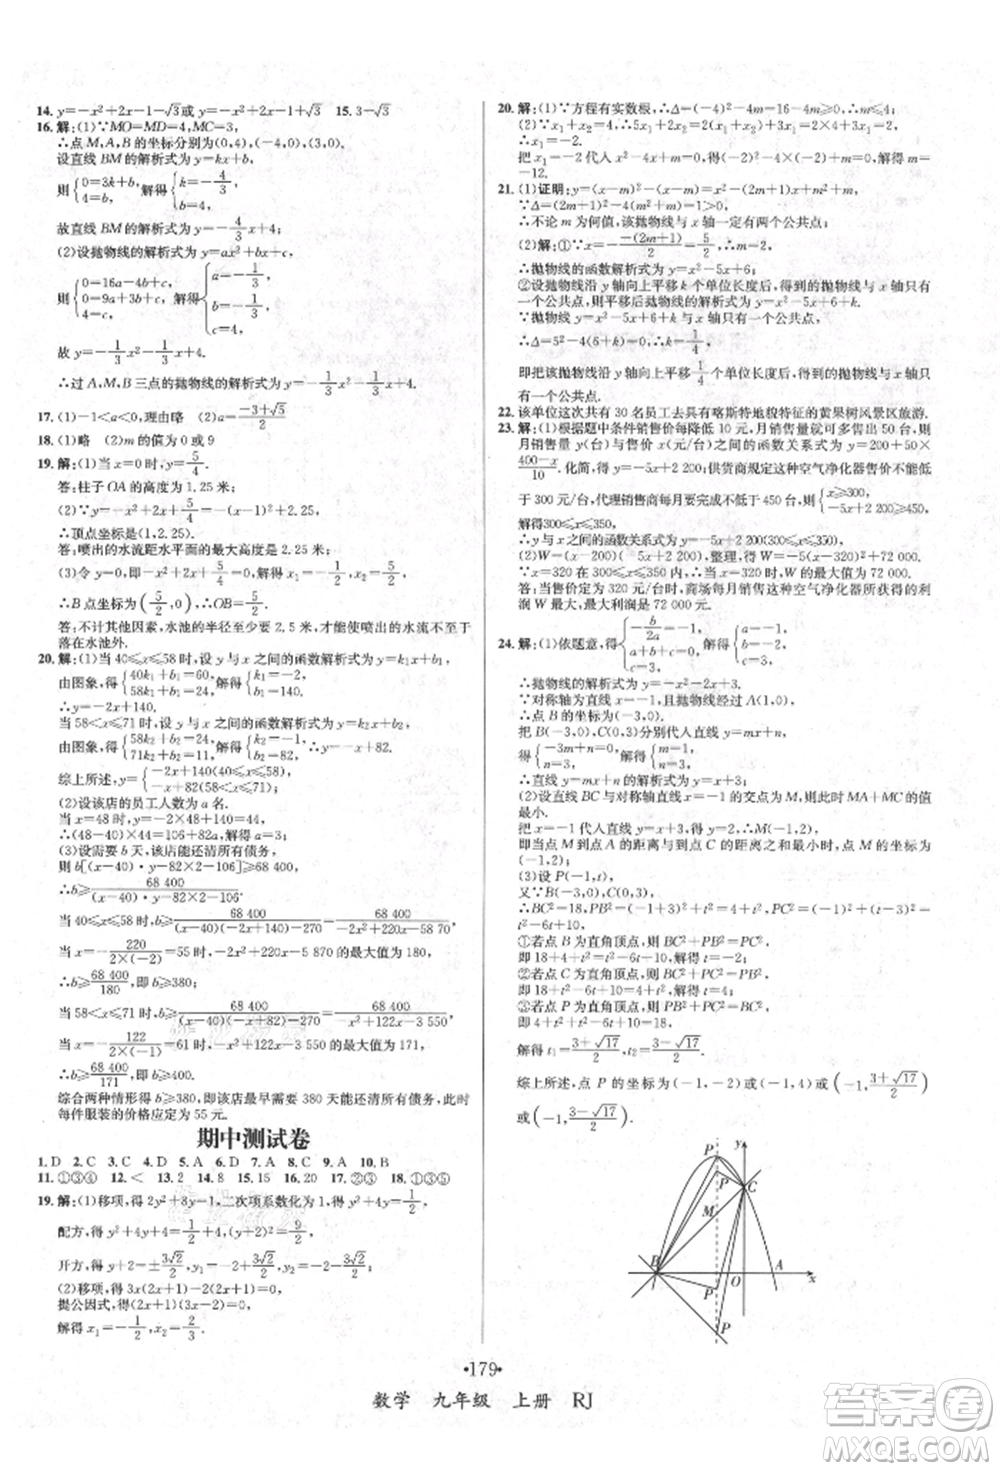 14. y=-x²+2x-1-√3或y=-x²+2x-1+√3 15. 3-√3
16. 解:(1)∵MO=MD=4,MC=3,
∴点M、A、B的坐标分别为(0,4),(-4,0),(3,0).
设直线BM的解析式为y=kx+b,
则{0=3k+b, 4=b, 解得{k=-4/3, b=4.
故直线BM的解析式为y=-4/3x+4.
(2)设抛物线的解析式为y=ax²+bx+c,
则{0=16a-4b+c, 0=9a+3b+c, 4=c, 解得{a=-1/3, b=-1/3, c=4,
故y=-1/3x²-1/3x+4,
∴过A、M、B三点的抛物线的解析式为y=-1/3x²-1/3x+4.
17. (1)-1<a<0,理由略 (2)a=(-3+√5)/2
18. (1)略 (2)m的值为0或9
19. 解:(1)当x=0时,y=5/4.
答:柱子OA的高度为1.25米.
(2)∵y=-x²+2x+5/4=-(x-1)²+2.25,
∴顶点坐标是(1,2.25).
答:喷出的水流距水平面的最大高度是2.25米.
(3)令-x²+2x+5/4=0,解得x₁=-1/2,x₂=5/2,
∴B点坐标为(5/2,0),∴OB=5/2.
答:不计其他因素,水池的半径至少要2.5米,才能使喷出的水流不至于
落在水池外.
20. 解:(1)当40≤x≤58时,设y与x之间的函数解析式为y=k₁x+b₁,
由图象,得{40k₁+b₁=60, 58k₁+b₁=24, 解得{k₁=-2, b₁=140,
∴y=-2x+140.
当58<x≤71时,设y与x之间的函数解析式为y=k₂x+b₂,
由图象,得{58k₂+b₂=24, 71k₂+b₂=11, 解得{k₂=-1, b₂=82, ∴y=-x+82.
综上所述,y={-2x+140(40≤x≤58) -x+82(58<x≤71)
(2)设该店的员工人数为a名.
当x=48时,y=-2×48+140=44,
∴(48-40)×44=82a+106,解得a=3.
(3)设需要b天,该店能还清所有债务,
则b[(x-40)y-82×2-106]≥68 400,
∴b≥68 400/((x-40)y-270)
当40≤x≤58时,b≥68 400/((x-40)(-2x+140)-270)=68 400/(-2x²+220x-5 870)
当x=-220/(2×(-2))=55时,-2x²+220x-5 870的最大值为180,
∴b≥68 400/180,即b≥380;
当58<x≤71时,b≥68 400/((x-40)(-x+82)-270)=68 400/(-x²+122x-3 550)
当x=-122/(2×(-1))=61时,-x²+122x-3 550的最大值为171,
∴b≥68 400/171,即b≥400.
综合两种情形得b≥380,即该店最早需要380天能还清所有债务,此时
每件服装的价格应定为55元.
期中测试卷
1. D 2. C 3. C 4. D 5. A 6. D 7. C 8. D 9. A 10. B
11. ①③④ 12. < 13. 2 14. 9 15. 10 16. 1 17. ②③ 18. ①③⑤
19. 解:(1)移项,得2y²+8y=1,二次项系数化为1,得y²+4y=1/2,
配方,得y²+4y+4=9/2,
开方,得y+2=±3√2/2,y₁=-2+3√2/2,y₂=-2-3√2/2.
(2)移项,得3x(2x+1)-2(2x+1)=0,
提公因式,得(2x+1)(3x-2)=0,
解得x₁=-1/2,x₂=2/3.
20. 解:(1)∵方程有实数根,∴Δ=(-4)²-4m=16-4m≥0,∴m≤4.
(2)∵x₁+x₂=4,∴5x₁+2x₂=2(x₁+x₂)+3x₁=2×4+3x₁=2,
∴x₁=-2.
把x₁=-2代入x²-4x+m=0,得(-2)²-4×(-2)+m=0,解得m=
-12.
21. (1)证明:y=(x-m)²-(x-m)=x²-(2m+1)x+m²+m,
∵Δ=(2m+1)²-4(m²+m)=1>0,
∴不论m为何值,该抛物线与x轴一定有两个公共点;
(2)解:①∵x=-(-(2m+1))/2=5/2,∴m=2,
∴抛物线的函数解析式为y=x²-5x+6;
②设抛物线沿y轴向上平移k个单位长度后,得到的抛物线与x轴只有
一个公共点,则平移后抛物线的解析式为y=x²-5x+6+k.
∵抛物线y=x²-5x+6+k与x轴只有一个公共点,
∴Δ=5²-4(6+k)=0,∴k=1/4,
即把该抛物线沿y轴向上平移1/4个单位长度后,得到的抛物线与x轴只
有一个公共点.
22. 该单位这次共有30名员工去具有喀斯特地貌特征的黄果树风景区旅游.
23. 解:(1)根据题中条件销售价每降低10元,月销售量就可多售出50台,则
月销售量y(台)与售价x(元/台)之间的函数关系式为y=200+50×
(400-x)/10.化简,得y=-5x+2 200;供货商规定这种空气净化器售价不能低
于300元/台,代理销售商每月要完成不低于450台,则{x≥300, -5x+2 200≥450,
解得300≤x≤350,
∴y与x之间的函数关系式为y=-5x+2 200(300≤x≤350).
(2)W=(x-200)(-5x+2 200),整理,得W=-5(x-320)²+72 000.
∵x=320在300≤x≤350内,∴当x=320时,最大值为72 000.
答:当售价x定为320元/台时,商场每月销售这种空气净化器所获得的利
润W最大,最大利润是72 000元.
24. 解:(1)依题意,得{-b/2a=-1, a+b+c=0, c=3, 解得{a=-1, b=-2, c=3.
∴抛物线的解析式为y=-x²-2x+3.
∵对称轴为直线x=-1,且抛物线经过点A(1,0),
∴点B的坐标为(-3,0).
把B(-3,0),C(0,3)分别代入直线y=mx+n,
得{-3m+n=0, n=3, 解得{m=1, n=3,
∴直线y=mx+n的解析式为y=x+3.
(2)设直线BC与对称轴直线x=-1的交点为M,则此时MA+MC的值
最小.
把x=-1代入直线y=x+3,得y=2,∴M(-1,2),
即当点M到点A的距离与到点C的距离之和最小时,点M的坐标为
(-1,2).
(3)设P(-1,t),
又∵B(-3,0),C(0,3),
∴BC²=18,PB²=(-1+3)²+t²=4+t²,PC²=(-1)²+(t-3)²=t²-6t+10,
①若点B为直角顶点,则BC²+PB²=PC²,
即18+4+t²=t²-6t+10,解得t=-2;
②若点C为直角顶点,则BC²+PC²=PB²,
即18+t²-6t+10=4+t²,解得t=4;
③若点P为直角顶点,则PB²+PC²=BC²,
即4+t²+t²-6t+10=18,
解得t₁=(3+√17)/2,t₂=(3-√17)/2.
综上所述,点P的坐标为(-1,-2)或(-1,4)或(-1,(3+√17)/2)
或(-1,(3-√17)/2).
y
P
P
C
M
B
O
A
x
P
P
•179•
数学 九年级 上册 RJ
答案圈
MXQE.COM